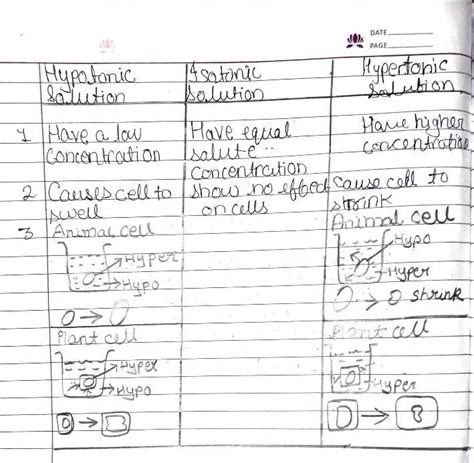 DATE
PAGE
Hypotonic Solution
Isotonic Solution
Hypertonic Solution
1 Have a low concentration
Have equal solute concentration
Have higher concentration
2 Causes cell to swell
show no effect on cells
Cause cell to shrink
3 Animal cell
Hyper
Hypo
Animal cell
Hypo
Hyper
shrink
Plant cell
Hyper
Hypo
Plant cell
Hyper